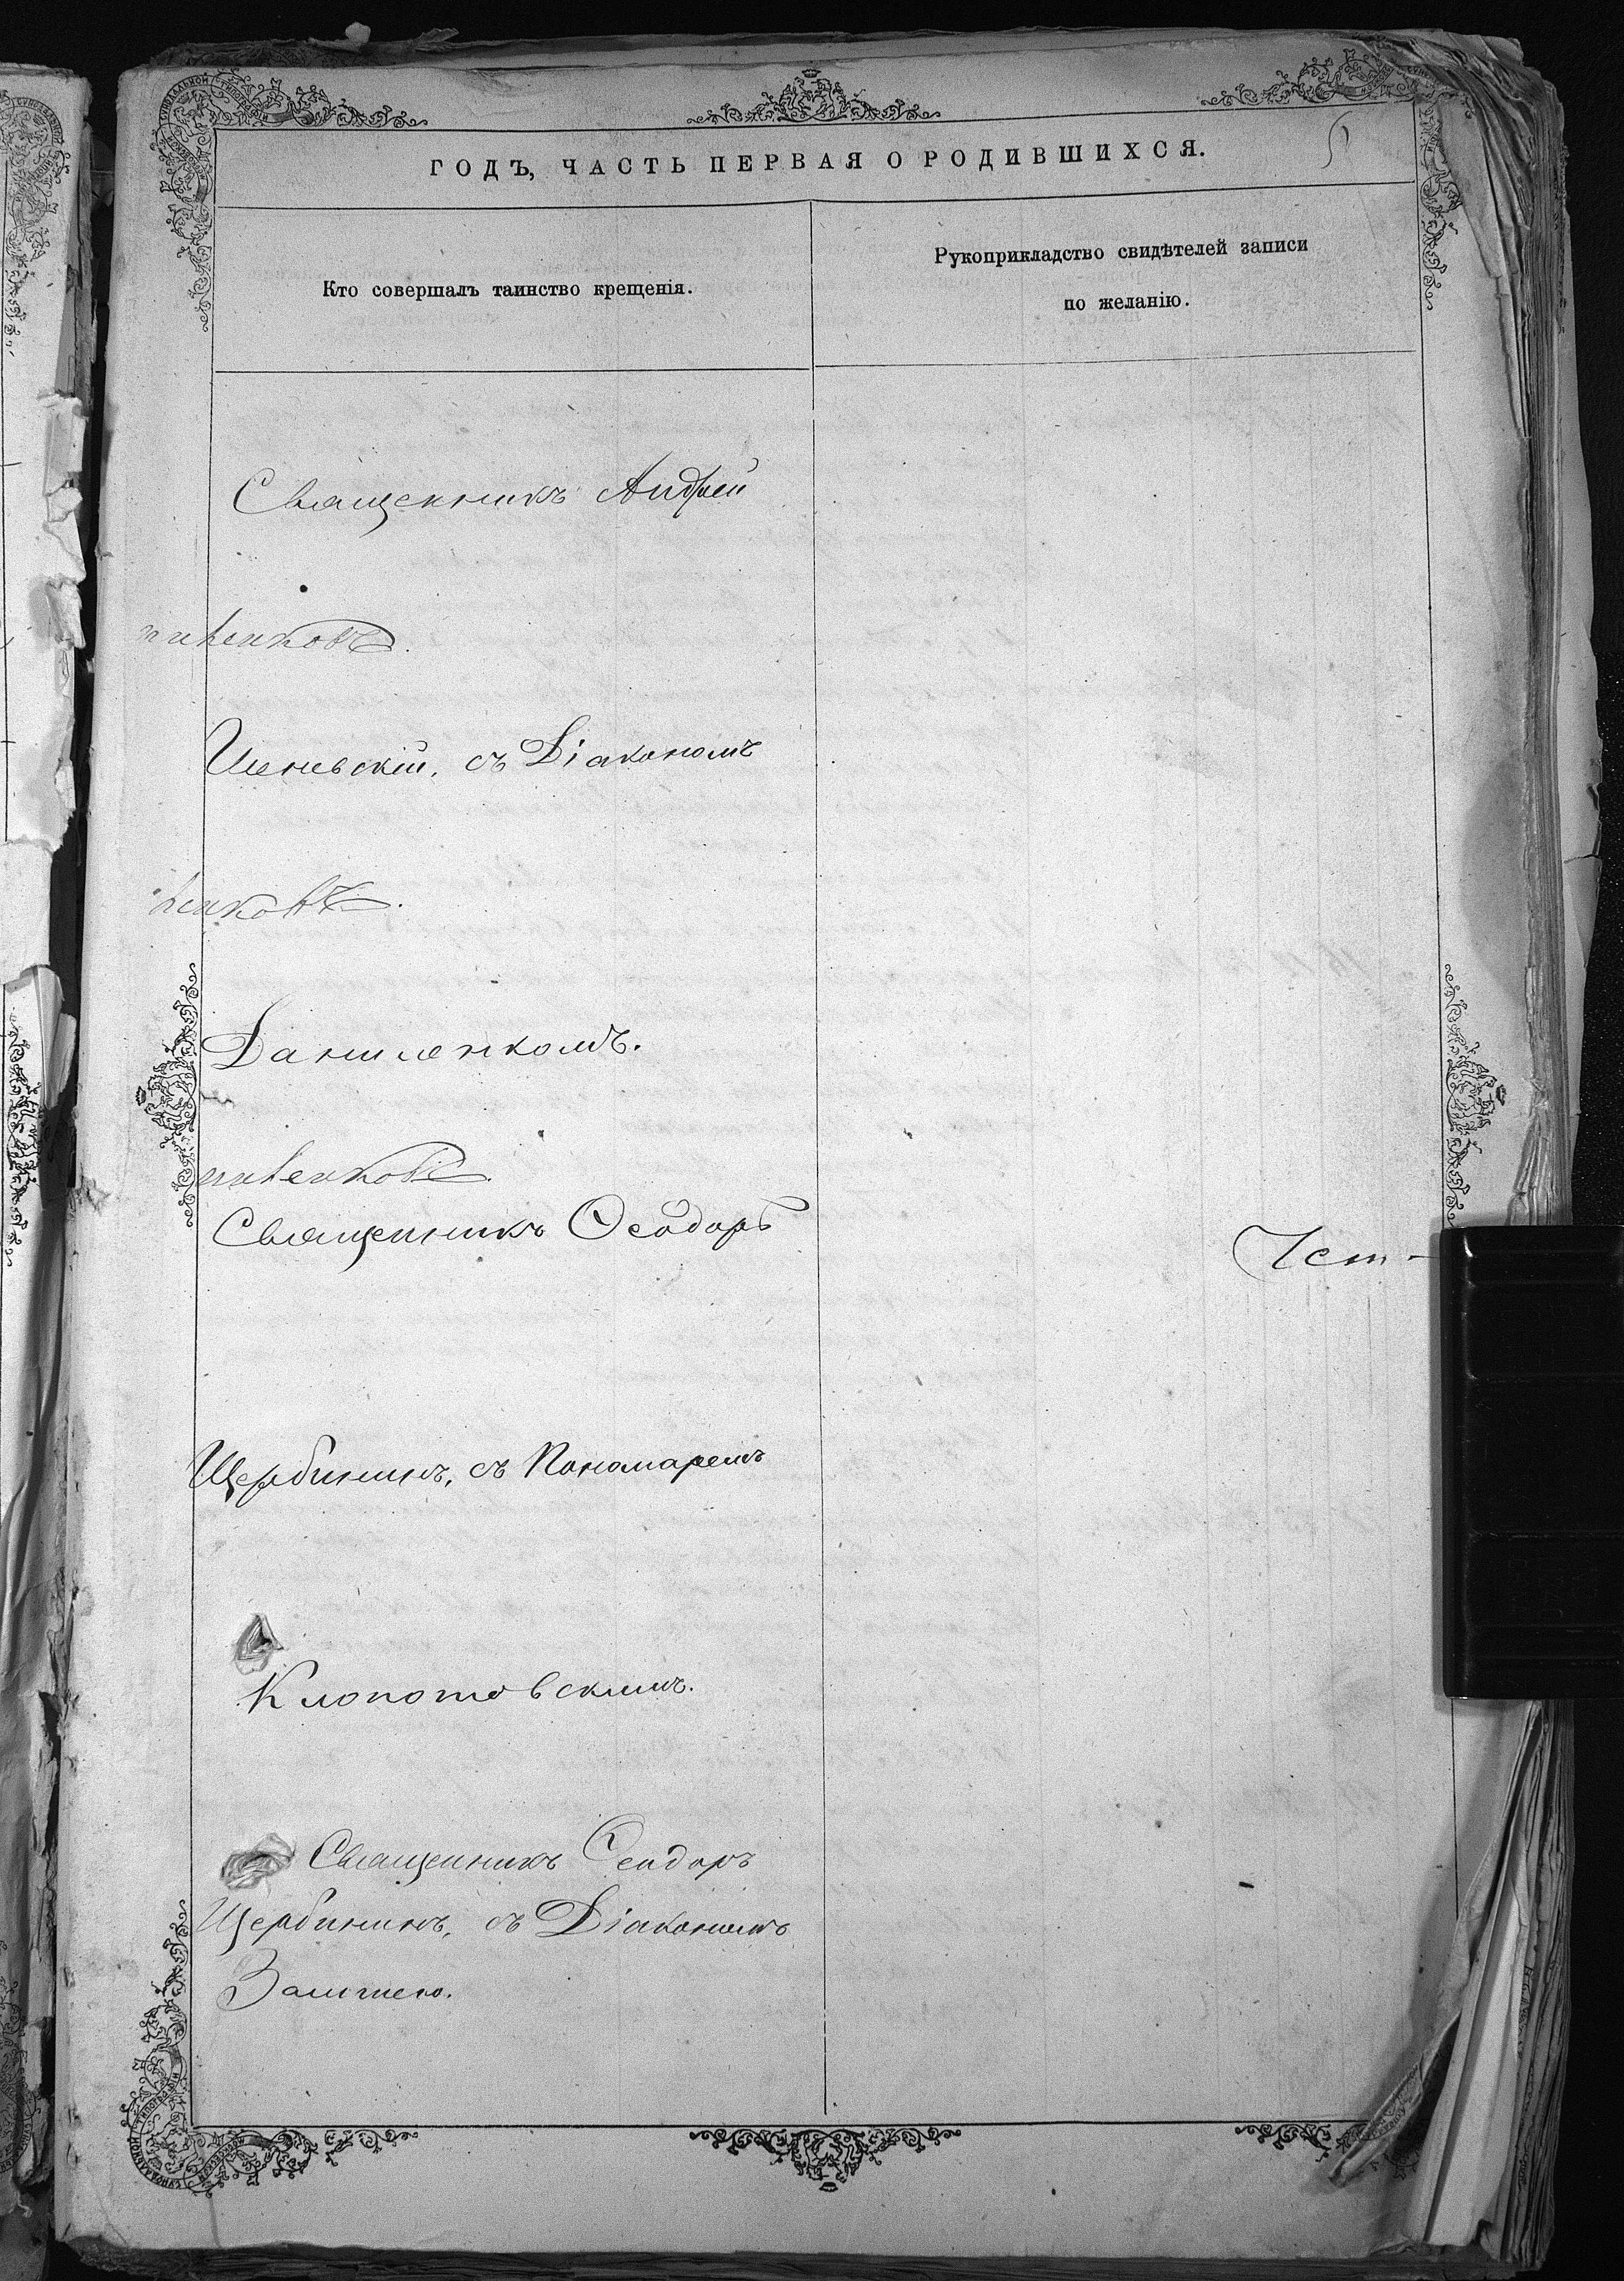 ГОДЪ, ЧАСТЬ ПЕРВАЯ О РОДИВШИХСЯ.
Кто совершалъ таинство крещенія.
Рукоприкладство свидѣтелей записи
по желанію.
Священникъ Андрей
съ Діакономъ
Даниленкомъ.
Священникъ Ѳеодоръ
Щербининъ, съ Пономаремъ
Клопотовскимъ.
Священникъ Ѳеодоръ
Щербининъ, съ Діакономъ